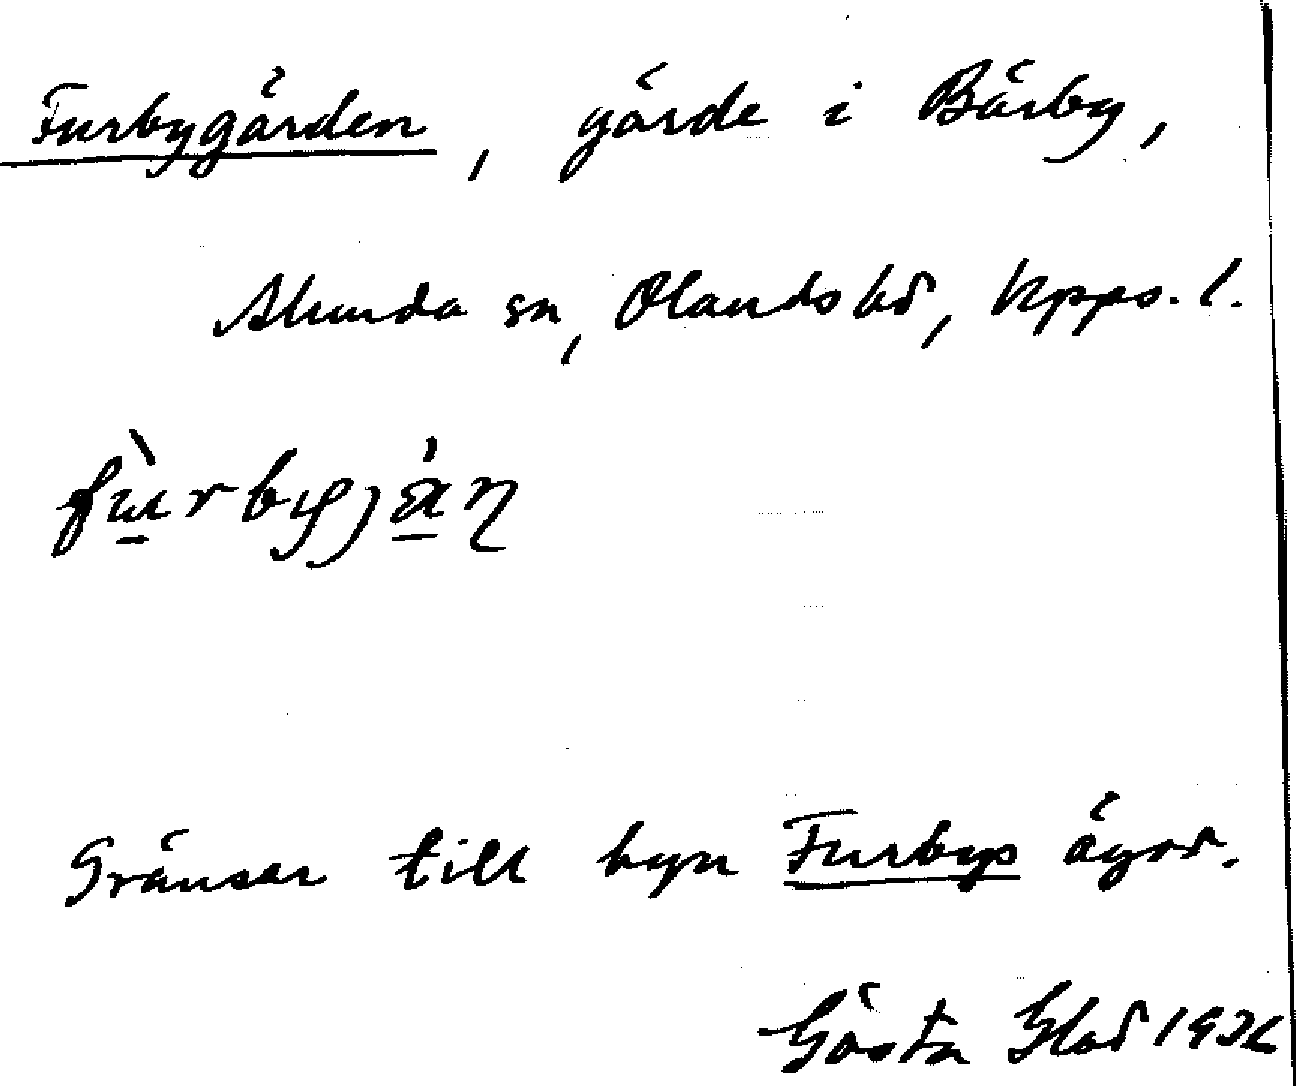 Furbygärden, gärde i Bärby,
Alunda sn, Olands hd, Upps. l.
fùrbyjä́ṇ
Gränsar till byn Furbys ägor.
Gösta Glad